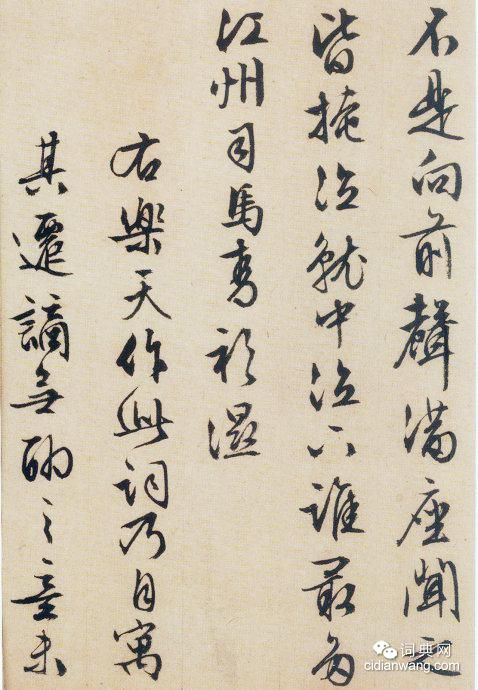 不是向前聲滿座聞之
皆掩泣就中泣下誰最多
江州司馬青衫濕
右樂天作此詞乃自寓
其遷謫無聊之意未
词典网
cidianwang.com